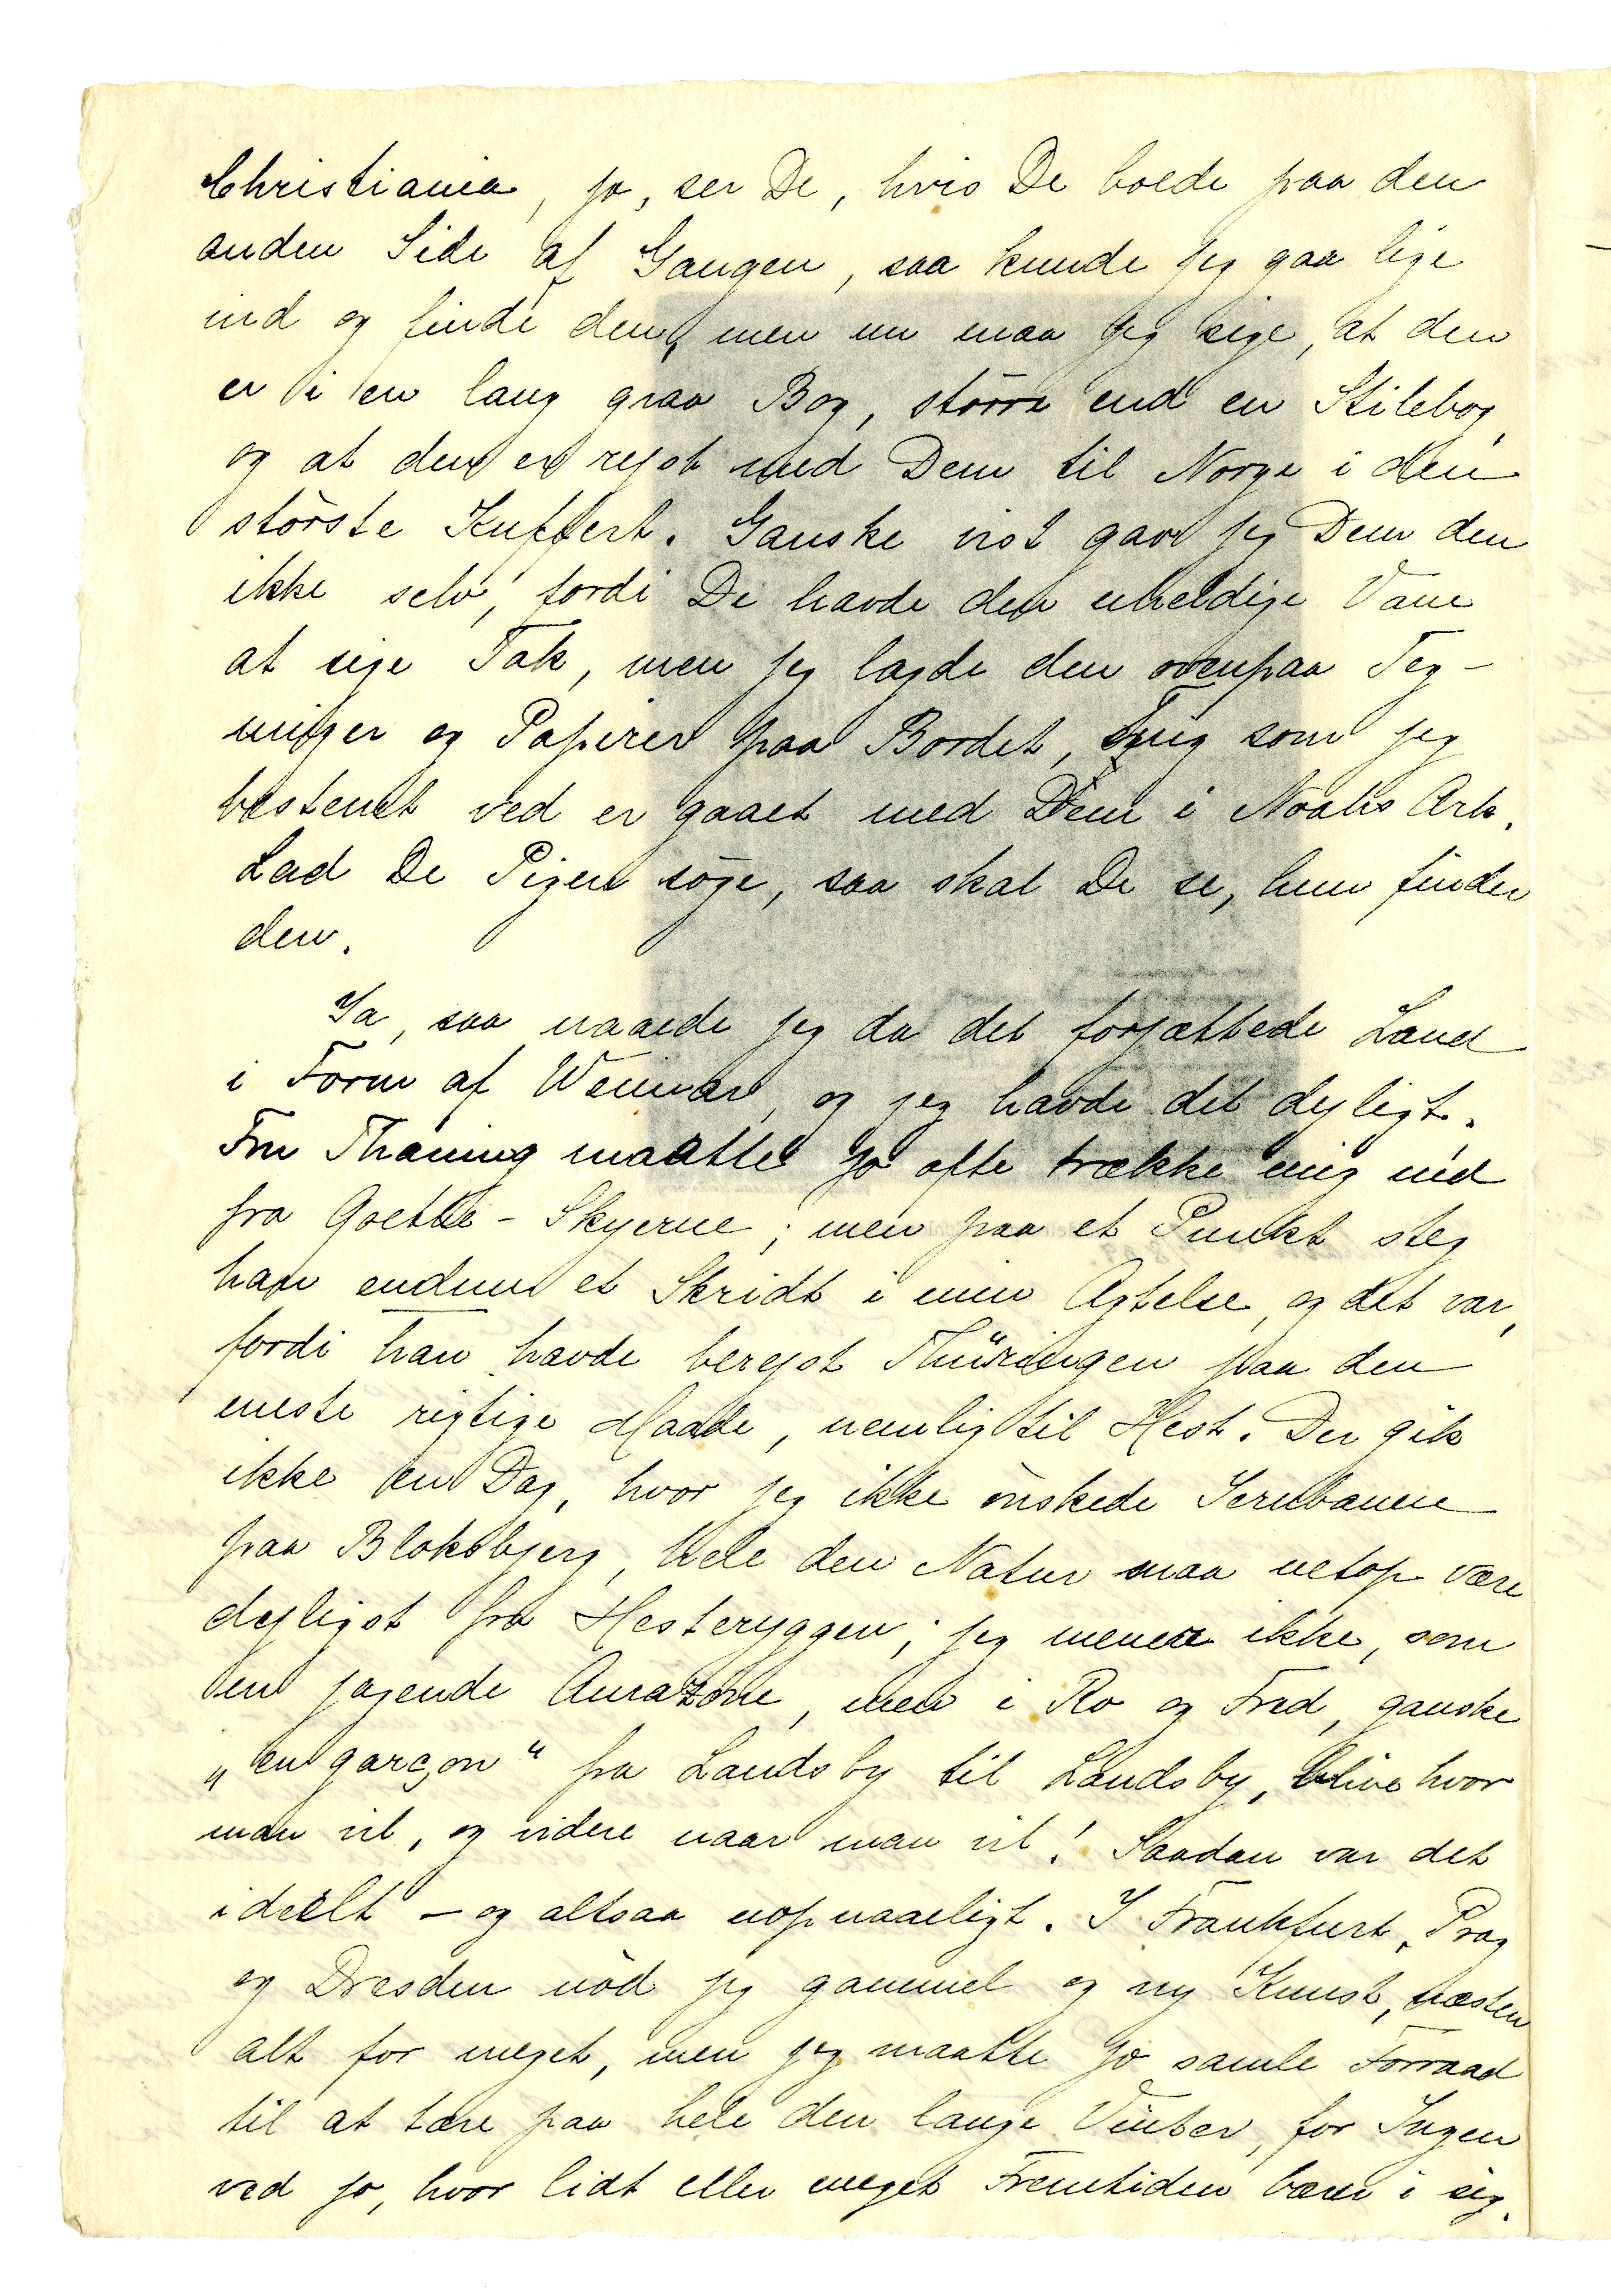 Christiania, ja, ser De, hvis De boede paa den
anden Side af Gangen, saa kunde jeg gaa lige
ind og finde den, men nu maa jeg sige, at den
er i en lang graa Bog, større end en Stilebog,
og at den er rejst med Dem til Norge i den
største Kuffert. Ganske vist gav jeg Dem den
ikke selv, fordi De havde den uheldige Vane
at sige Tak, men jeg lagde den ovenpaa Teg-
ninger og Papirer paa Bordet, som jeg
bestemt ved er gaaet med Dem i Noahs Ark.
Lad De Pigen søge, saa skal De se, hun finder
den.
Ja, saa naaede jeg da det forjættede Land
i Form af Weimar, og jeg havde det dejligt.
Fru Thaning maatte jo ofte trække mig ned
fra Goethe-Skyerne; men paa et Punkt steg
han endnu et Skridt i min Agtelse, og det var,
fordi han havde berejst Thüringen paa den
eneste rigtige Maade, nemlig til Hest. Der gik
ikke en Dag, hvor jeg ikke ønskede Jernbanen
paa Bloksbjerg, hele den Natur maa netop være
dejligst fra Hesteryggen; jeg mener ikke, som
en jagende Amazone, men i Ro og Fred, ganske
„en garçon“ fra Landsby til Landsby, blive hvor
man vil, og videre naar man vil! Saadan var det
ideelt – og altsaa uopnaaeligt. I Frankfurt, Prag
og Dresden nød jeg gammel og ny Kunst, næsten
alt for meget, men jeg maatte jo samle Forraad
til at tære paa hele den lange Vinter, for Ingen
ved jo, hvor lidt eller meget Fremtiden bærer i sig.